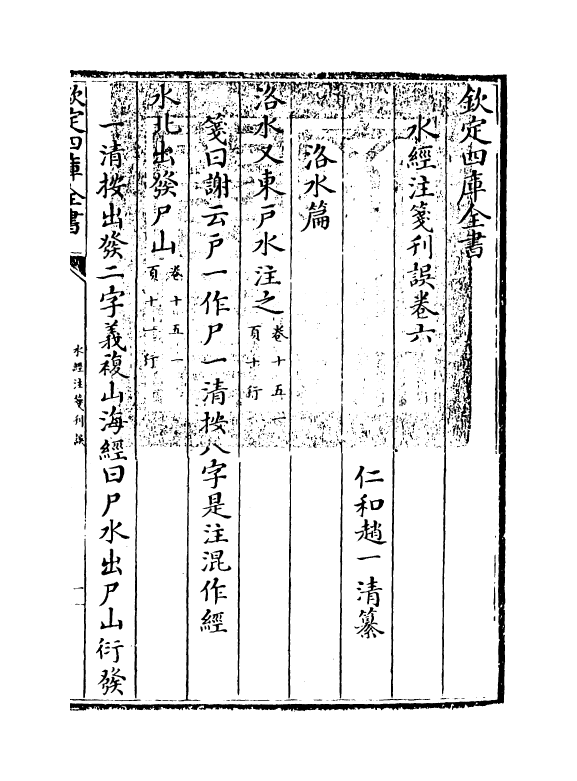 欽定四庫全書
水經注箋刊誤卷六
仁和趙一清纂
洛水篇
洛水又東戸水注之卷十五一頁十行
箋曰謝云戸一作尸一清按八字是注混作經
水北出發尸山卷十五一頁十一行
一清按出發二字義複山海經曰尸水出尸山衍發
欽定四庫全書
水經注箋刊誤
一